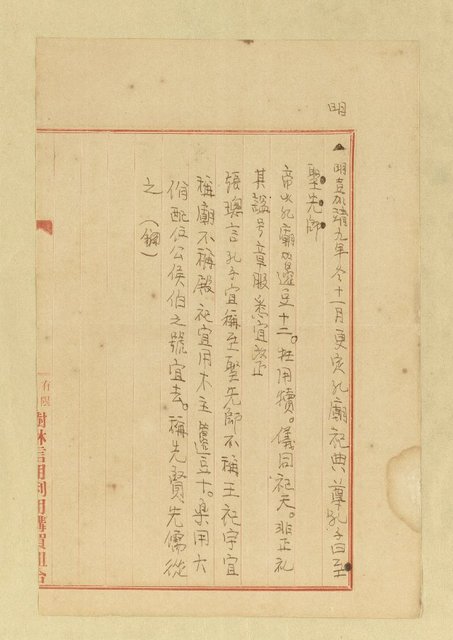 明
▲明嘉靖九年冬十一月更定孔廟祀典尊孔子曰至
聖先師
帝以孔廟用籩豆十二。牲用犢。儀同祀天。非正禮
其諡号章服悉宜改正
張璁言孔子宜稱至聖先師不稱王祀宇宜
稱廟不稱殿祀宜用木主籩豆十。樂用六
佾配位公侯伯之號宜去。稱先賢先儒從
之(鋼)
有限
樹林信用利用購買組合